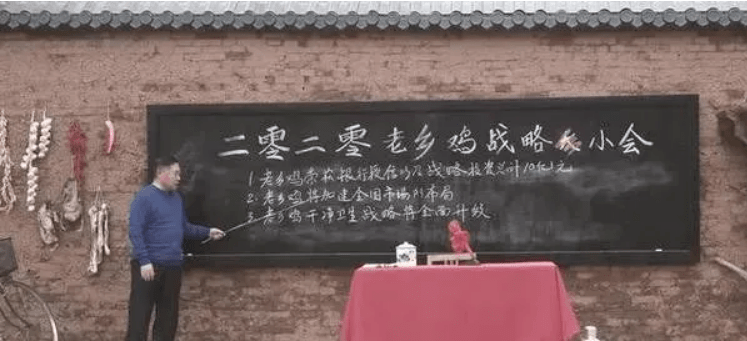 二零二零老乡鸡战略大小会
1. 老乡鸡荣获银行授信以及战略投资总计10亿元
2. 老乡鸡将加速全国市场的布局
3. 老乡鸡干净卫生战略将全面升级